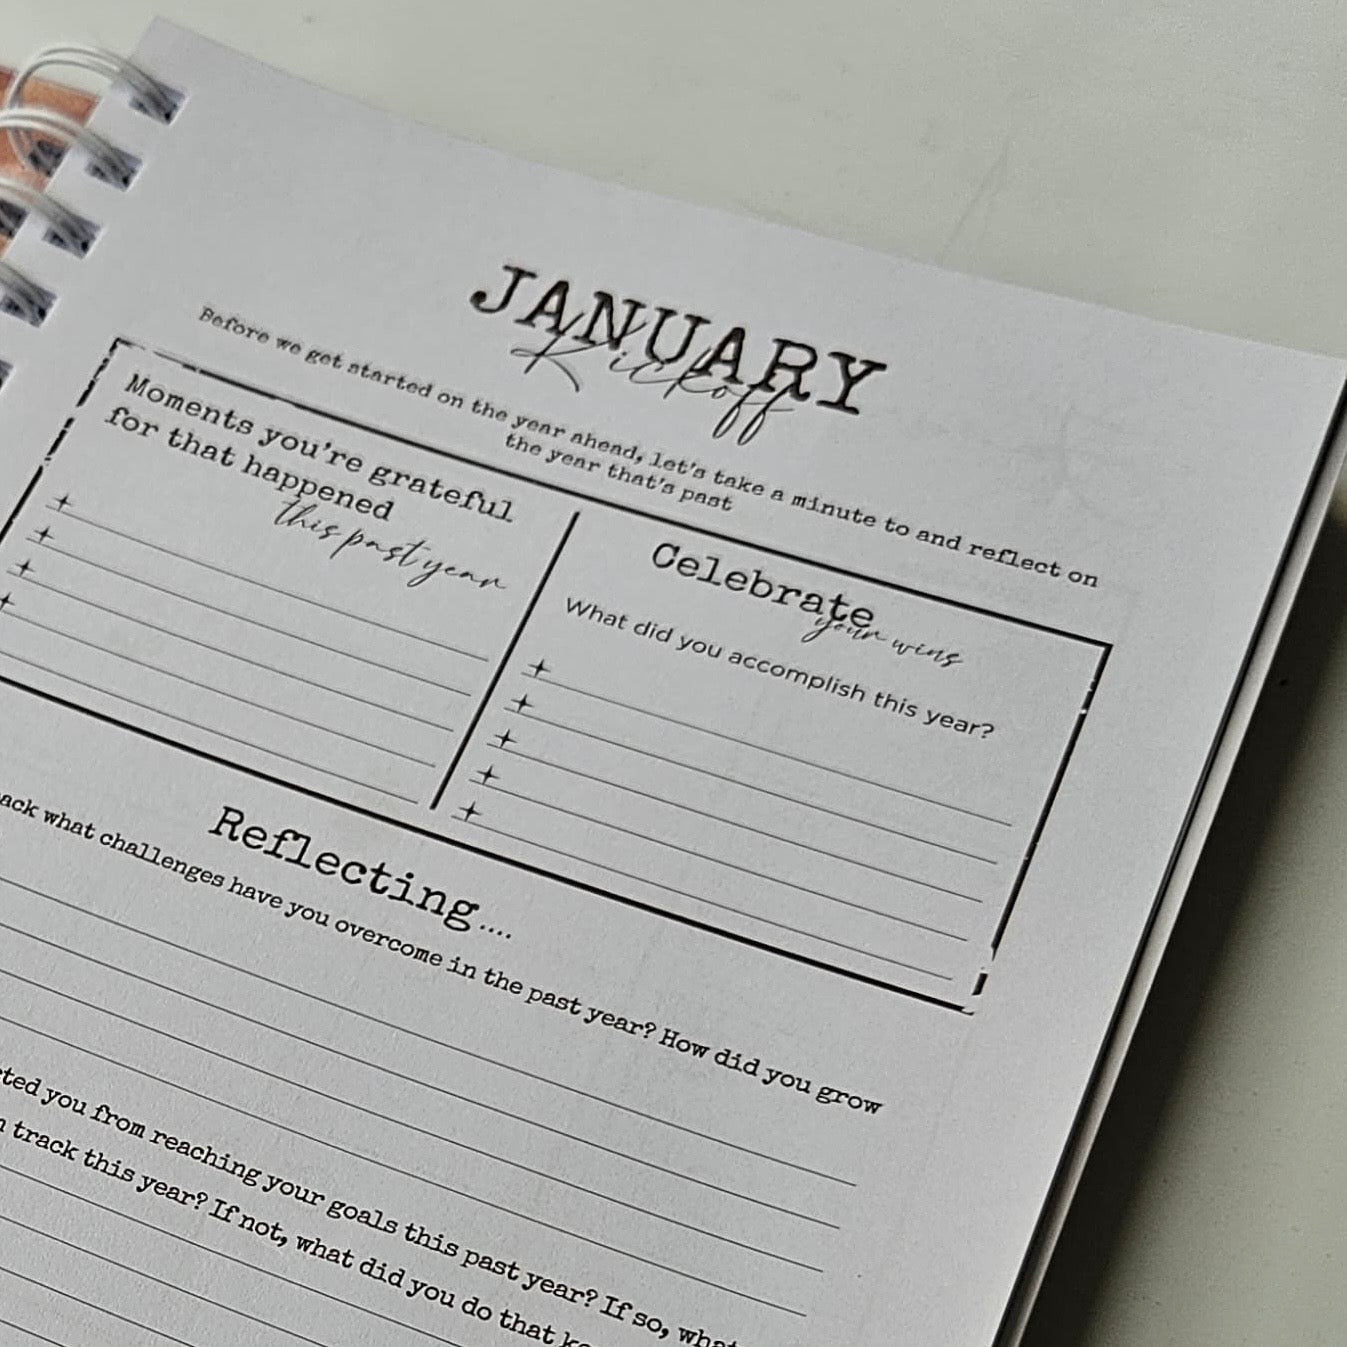 JANUARY
Kickoff
Before we get started on the year ahead, let's take a minute to and reflect on
the year that's past
Moments you're grateful
for that happened
this past year
Celebrate
your wins
What did you accomplish this year?
Reflecting....
what challenges have you overcome in the past year? How did you grow
you from reaching your goals this past year? If so,
track this year? If not, what did you do that